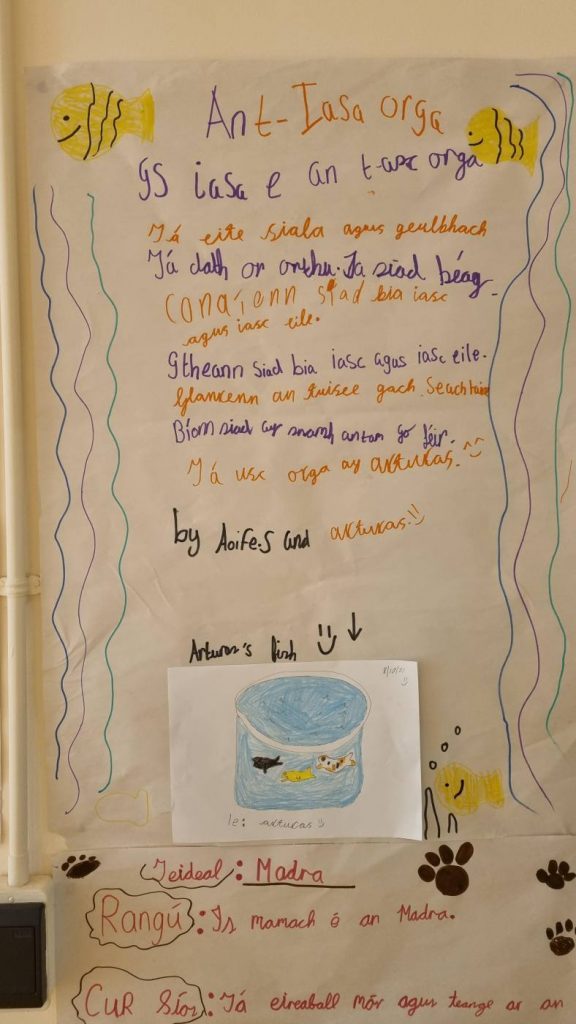 Ant-Iasa orga
Is iasa e an t-asc orga
Tá eite siala agus geulbhach
Tá dath or orthu. Ta siad béag.
Conaíenn siad bia iasc
agus iasc eile.
Itheann siad bia iasc agus iasc eile.
Glankenn an tuisce gach Seachtain
Bíonn siad ay snamh antam go léir.
Tá iasc orga ay arturas.
by Aoife.S and arturas.
Arturas's fish
8/10/21
le: arturas
Teideal: Madra
Rangú: Is mamach é an Madra.
Cur Síos: Tá eireaball mór agus teange ar an